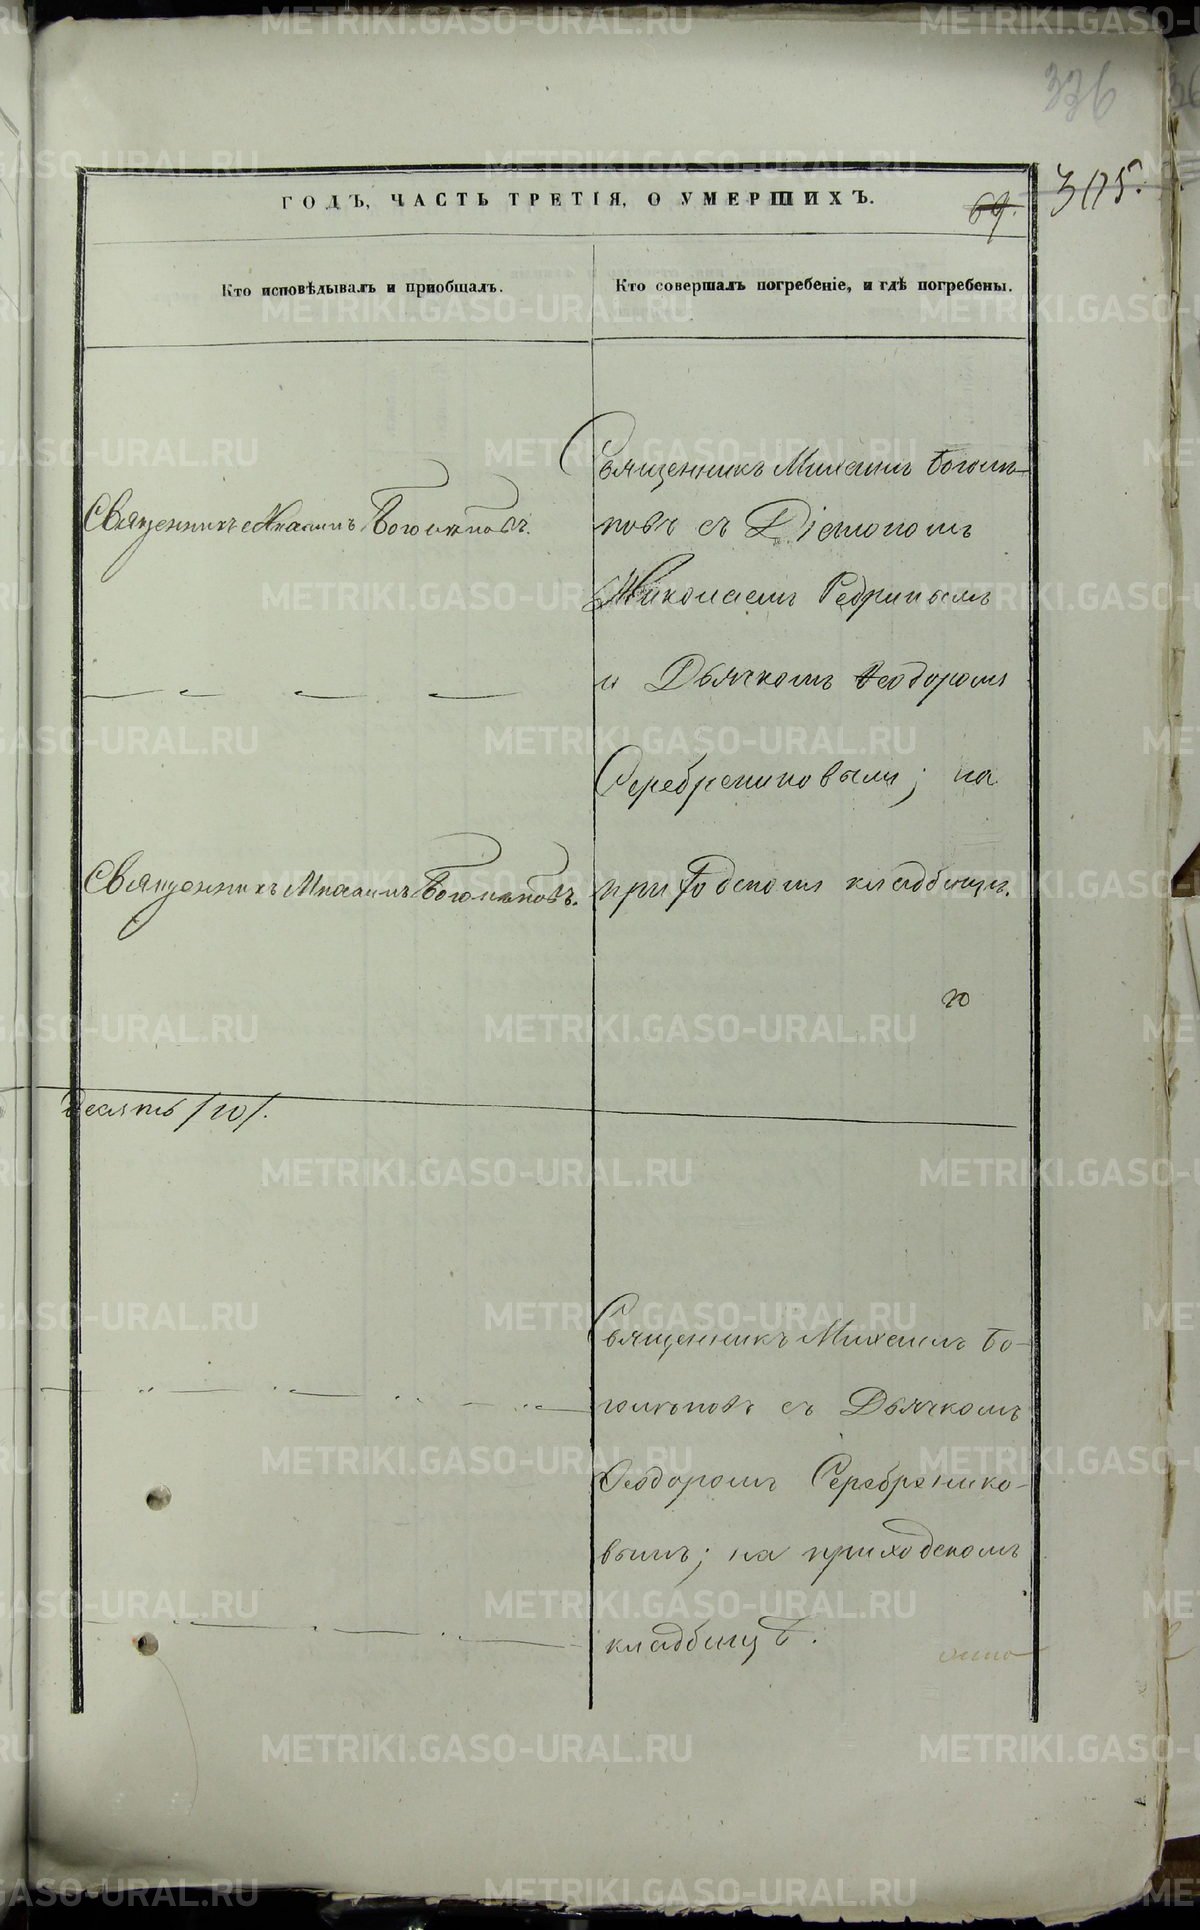 336
305.
ГОДЪ, ЧАСТЬ ТРЕТІЯ, О УМЕРШИХЪ.
69.
Кто исповѣдывалъ и пріобщалъ.
Кто совершалъ погребеніе, и гдѣ погребены.
Священникъ Михаилъ Боголѣповъ.
Священникъ Михаилъ Боголѣ-
повъ съ Діакономъ
Николаемъ
и Дьячкомъ Ѳеодоромъ
Серебрениковымъ; на
Священникъ Михаилъ Боголѣповъ.
приходскомъ кладбищѣ.
десять /10/.
Священникъ Михаилъ Бо-
голѣповъ съ Дьячкомъ
Ѳеодоромъ Серебренико-
вымъ; на приходскомъ
кладбищѣ.
METRIKI.GASO-URAL.RU